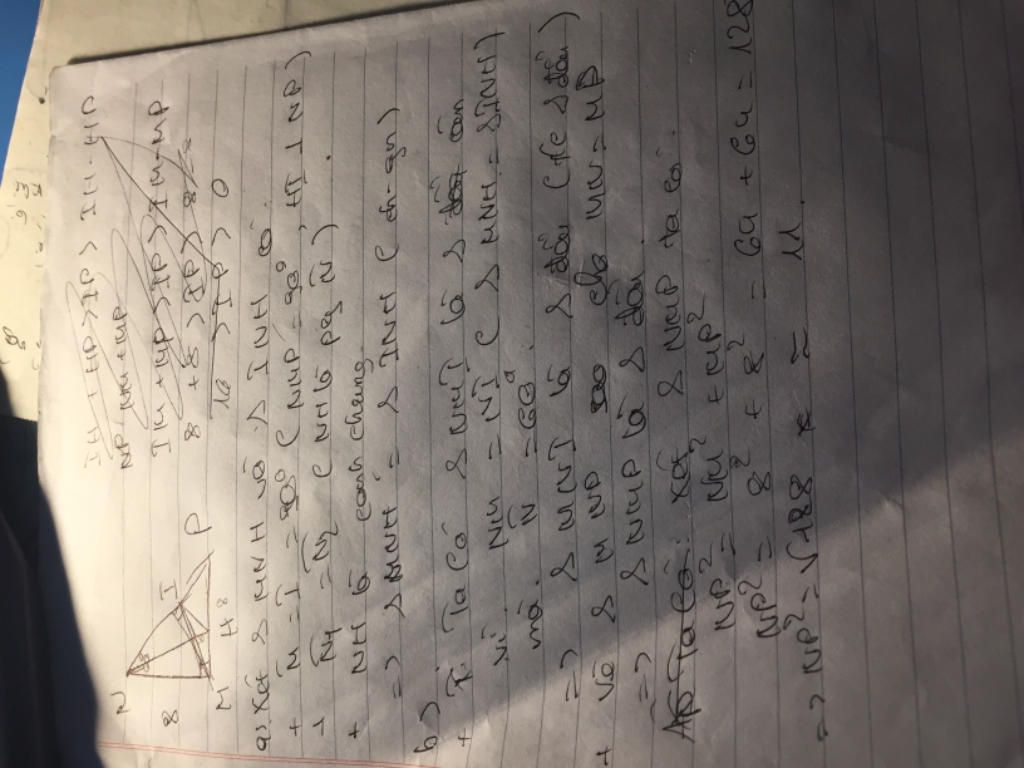 IH + HP > IP > IH - HP
NP : NM + MP
IM + MP > IP > IM - MP
8 + 8 > IP > 8 - 8
16 > IP > 0
N
8
M H 8 P
I
a) Xét Δ MNH và Δ INH có
+ M̂ = Î = 90° ( NMP = 90°, HI ⊥ NP )
+ N̂1 = N̂2 ( NH là pg N̂ )
+ NH là cạnh chung
=> Δ MNH = Δ INH ( ch-gn )
b)
+ Ta có Δ NMI là Δ cân
vì NM = NI ( Δ MNH = Δ INH )
mà N̂ = 60°
=> Δ MNI là Δ đều
+ Vì Δ M NP có MN = MP
=> Δ NMP là Δ
Ta có: xét Δ NMP ta có:
NP² = NM² + MP²
NP² = 8² + 8² = 64 + 64 = 128
=> NP² = √128 ≈ 11